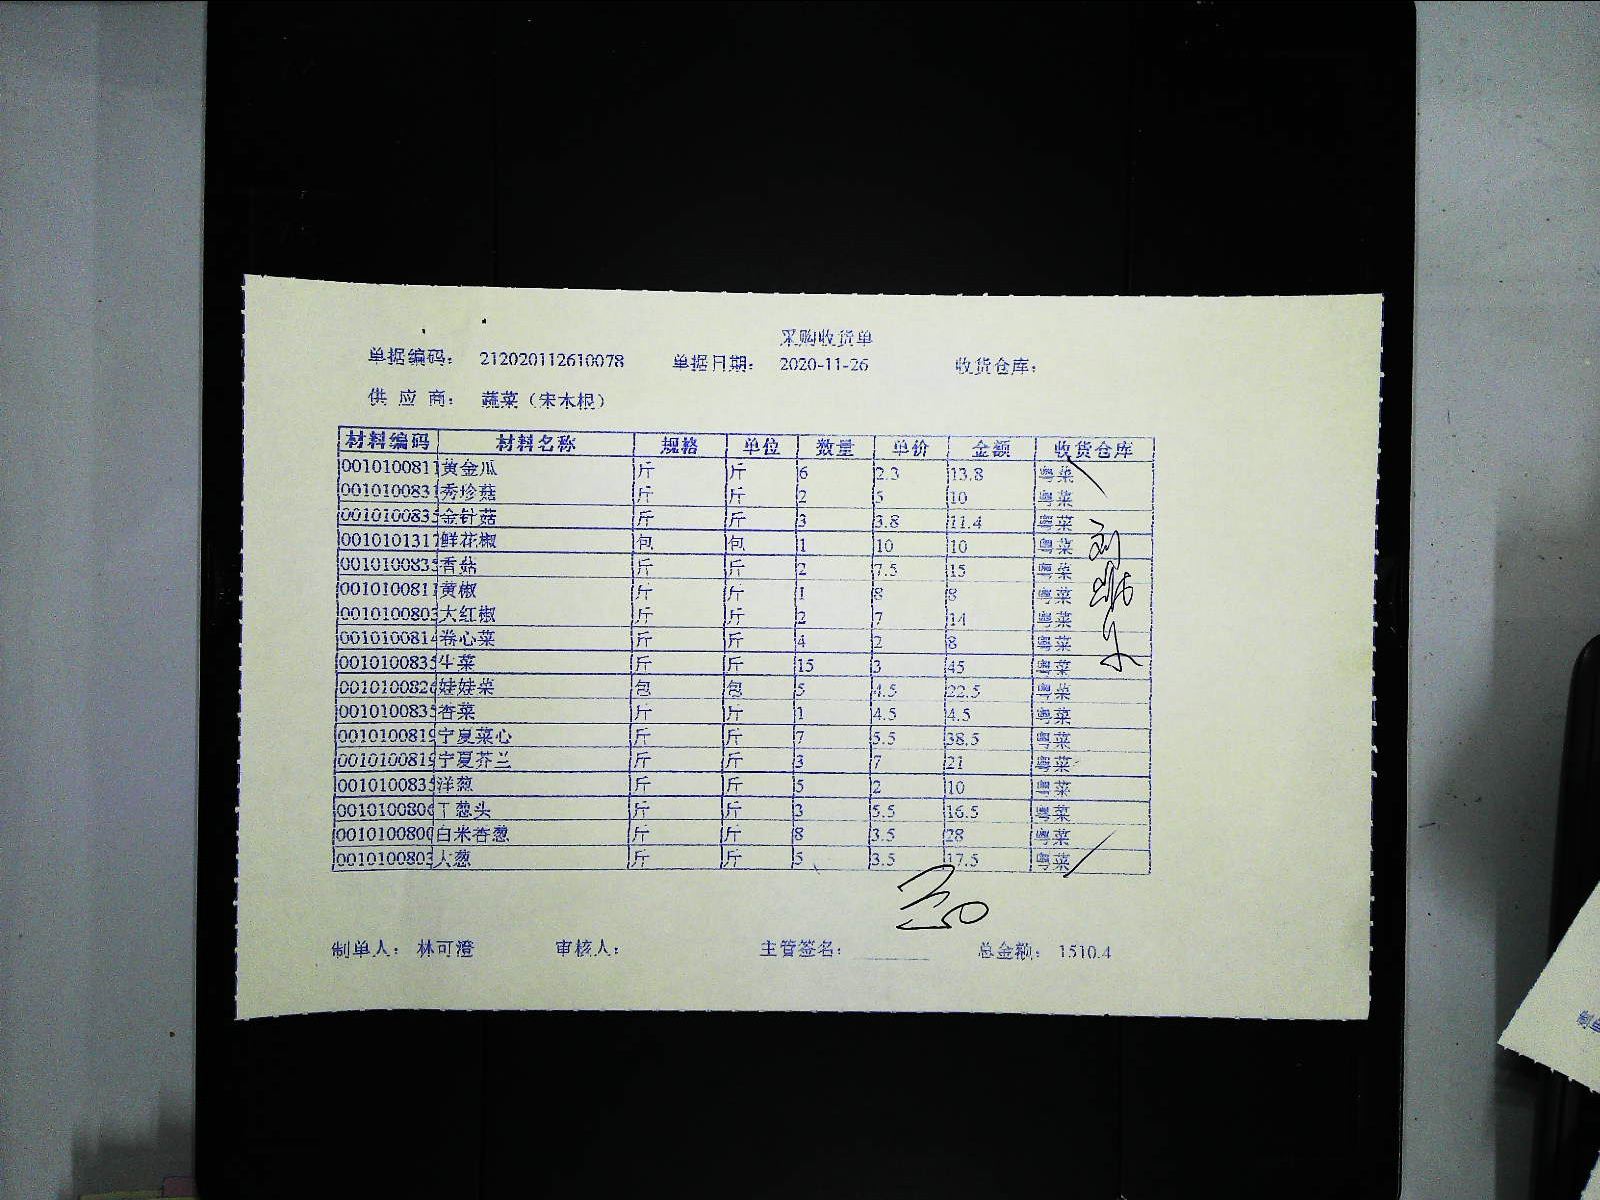 采购收货单
单据编码: 212020112610078 单据日期: 2020-11-26 收货仓库:
供 应 商: 蔬菜（宋木根）
材料编码 材料名称 规格 单位 数量 单价 金额 收货仓库
0010100811 黄金瓜 斤 斤 6 2.3 13.8 粤菜
0010100831 秀珍菇 斤 斤 2 5 10 粤菜
001010083 金针菇 斤 斤 3 3.8 11.4 粤菜
0010101317 鲜花椒 包 包 1 10 10 粤菜
001010083 香菇 斤 斤 2 7.5 15 粤菜
0010100811 黄椒 斤 斤 1 8 8 粤菜
001010080 大红椒 斤 斤 2 7 14 粤菜
001010081 卷心菜 斤 斤 4 2 8 粤菜
001010083 斤 斤 15 3 45 粤菜
001010082 娃娃菜 包 包 5 4.5 22.5 粤菜
001010083 香菜 斤 斤 1 4.5 4.5 粤菜
001010081 宁夏菜心 斤 斤 7 5.5 38.5 粤菜
001010081 宁夏芥兰 斤 斤 3 7 21 粤菜
001010083 洋葱 斤 斤 5 2 10 粤菜
001010080 干葱头 斤 斤 3 5.5 16.5 粤菜
001010080 白米香葱 斤 斤 8 3.5 28 粤菜
001010080 大葱 斤 斤 5 3.5 17.5 粤菜
制单人: 林可澄 审核人: 主管签名: 总金额: 1510.4